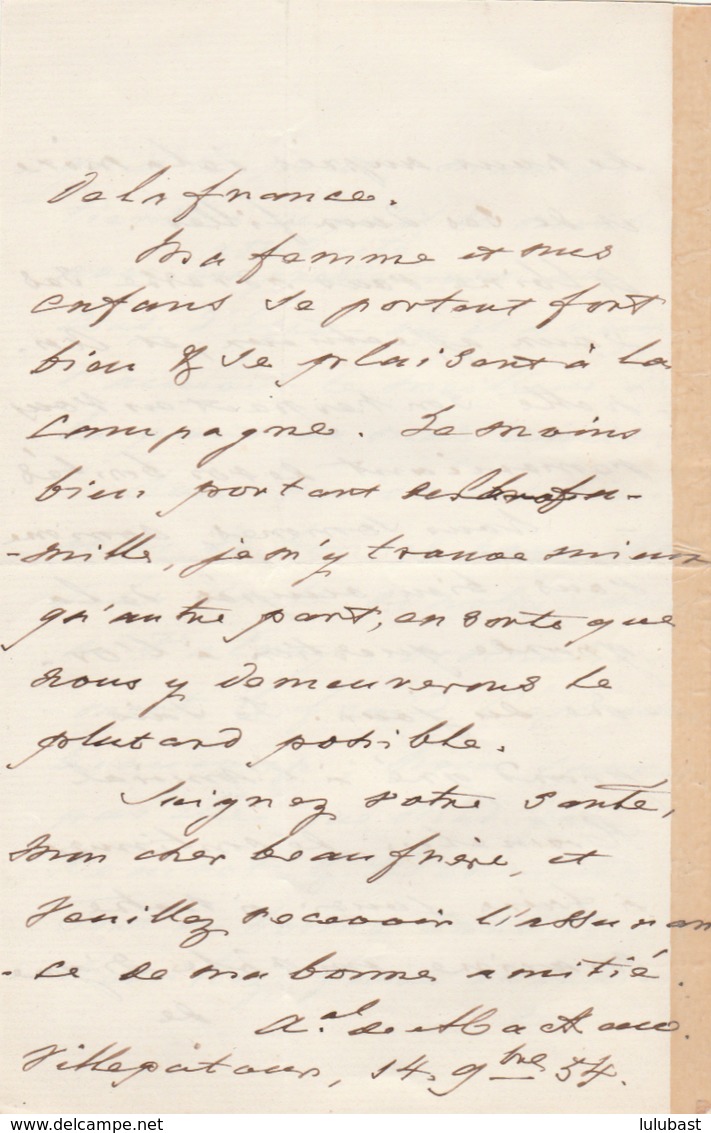 De la france.
Ma femme et mes
enfans se portent fort
bien & se plaisent à la
campagne. Le moins
bien portant de la fa-
-mille, je m'y trouve mieux
qu'autre part, en sorte que
nous y demeurerons le
plutard possible.
Soignez votre santé,
mon cher beaufrère, et
veuillez recevoir l'assuran
-ce de ma bonne amitié.
A.al de Mackau.
Villepatour, 14. 9bre 54.
lulubast
delcampe.net